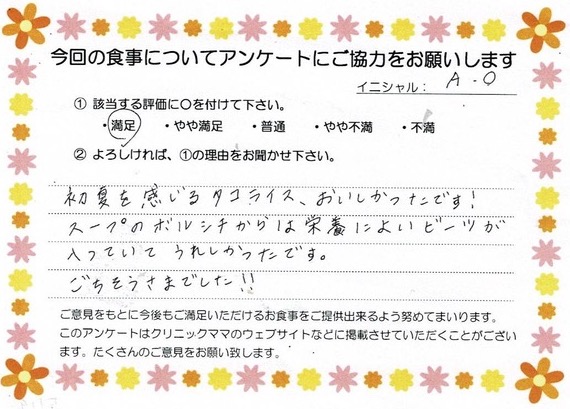 今回の食事についてアンケートにご協力をお願いします
イニシャル： A.O
① 該当する評価に〇を付けて下さい。
・満足 ・やや満足 ・普通 ・やや不満 ・不満
② よろしければ、①の理由をお聞かせ下さい。
初夏を感じるタコライス、おいしかったです！
スープのボルシチからは栄養によいビーツが
入っていてうれしかったです。
ごちそうさまでした!!
ご意見をもとに今後もご満足いただけるお食事をご提供出来るよう努めてまいります。
このアンケートはクリニックママのウェブサイトなどに掲載させていただくことがござい
ます。たくさんのご意見をお願い致します。